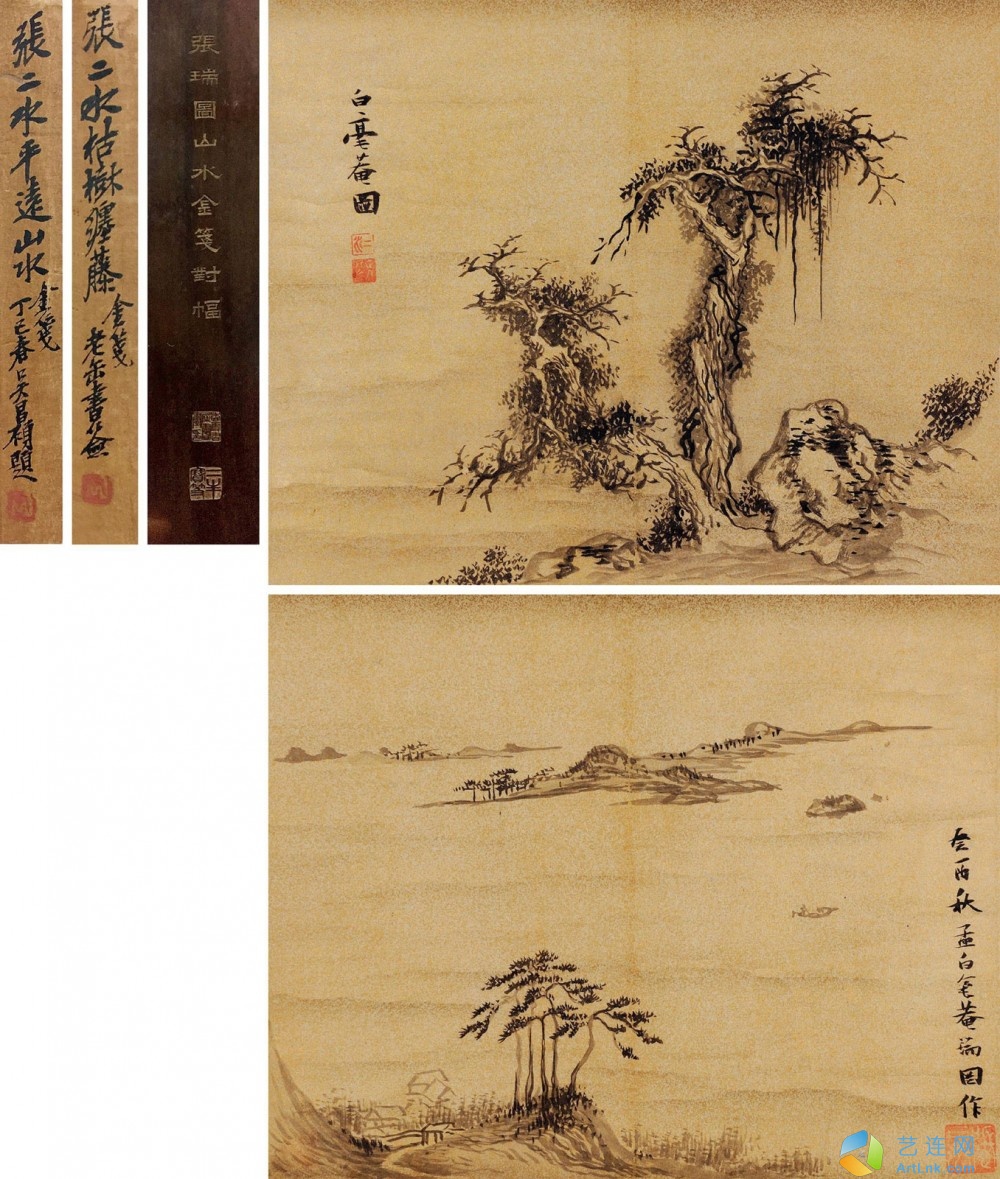 張二水平遠山水
金箋
丁巳春吳昌碩題
張二水枯樹纏藤
金箋
老缶書簽
張瑞圖山水金箋對幅
白毫菴圖
癸酉秋孟白毫菴瑞圖作
艺连网
ArtLnk.com